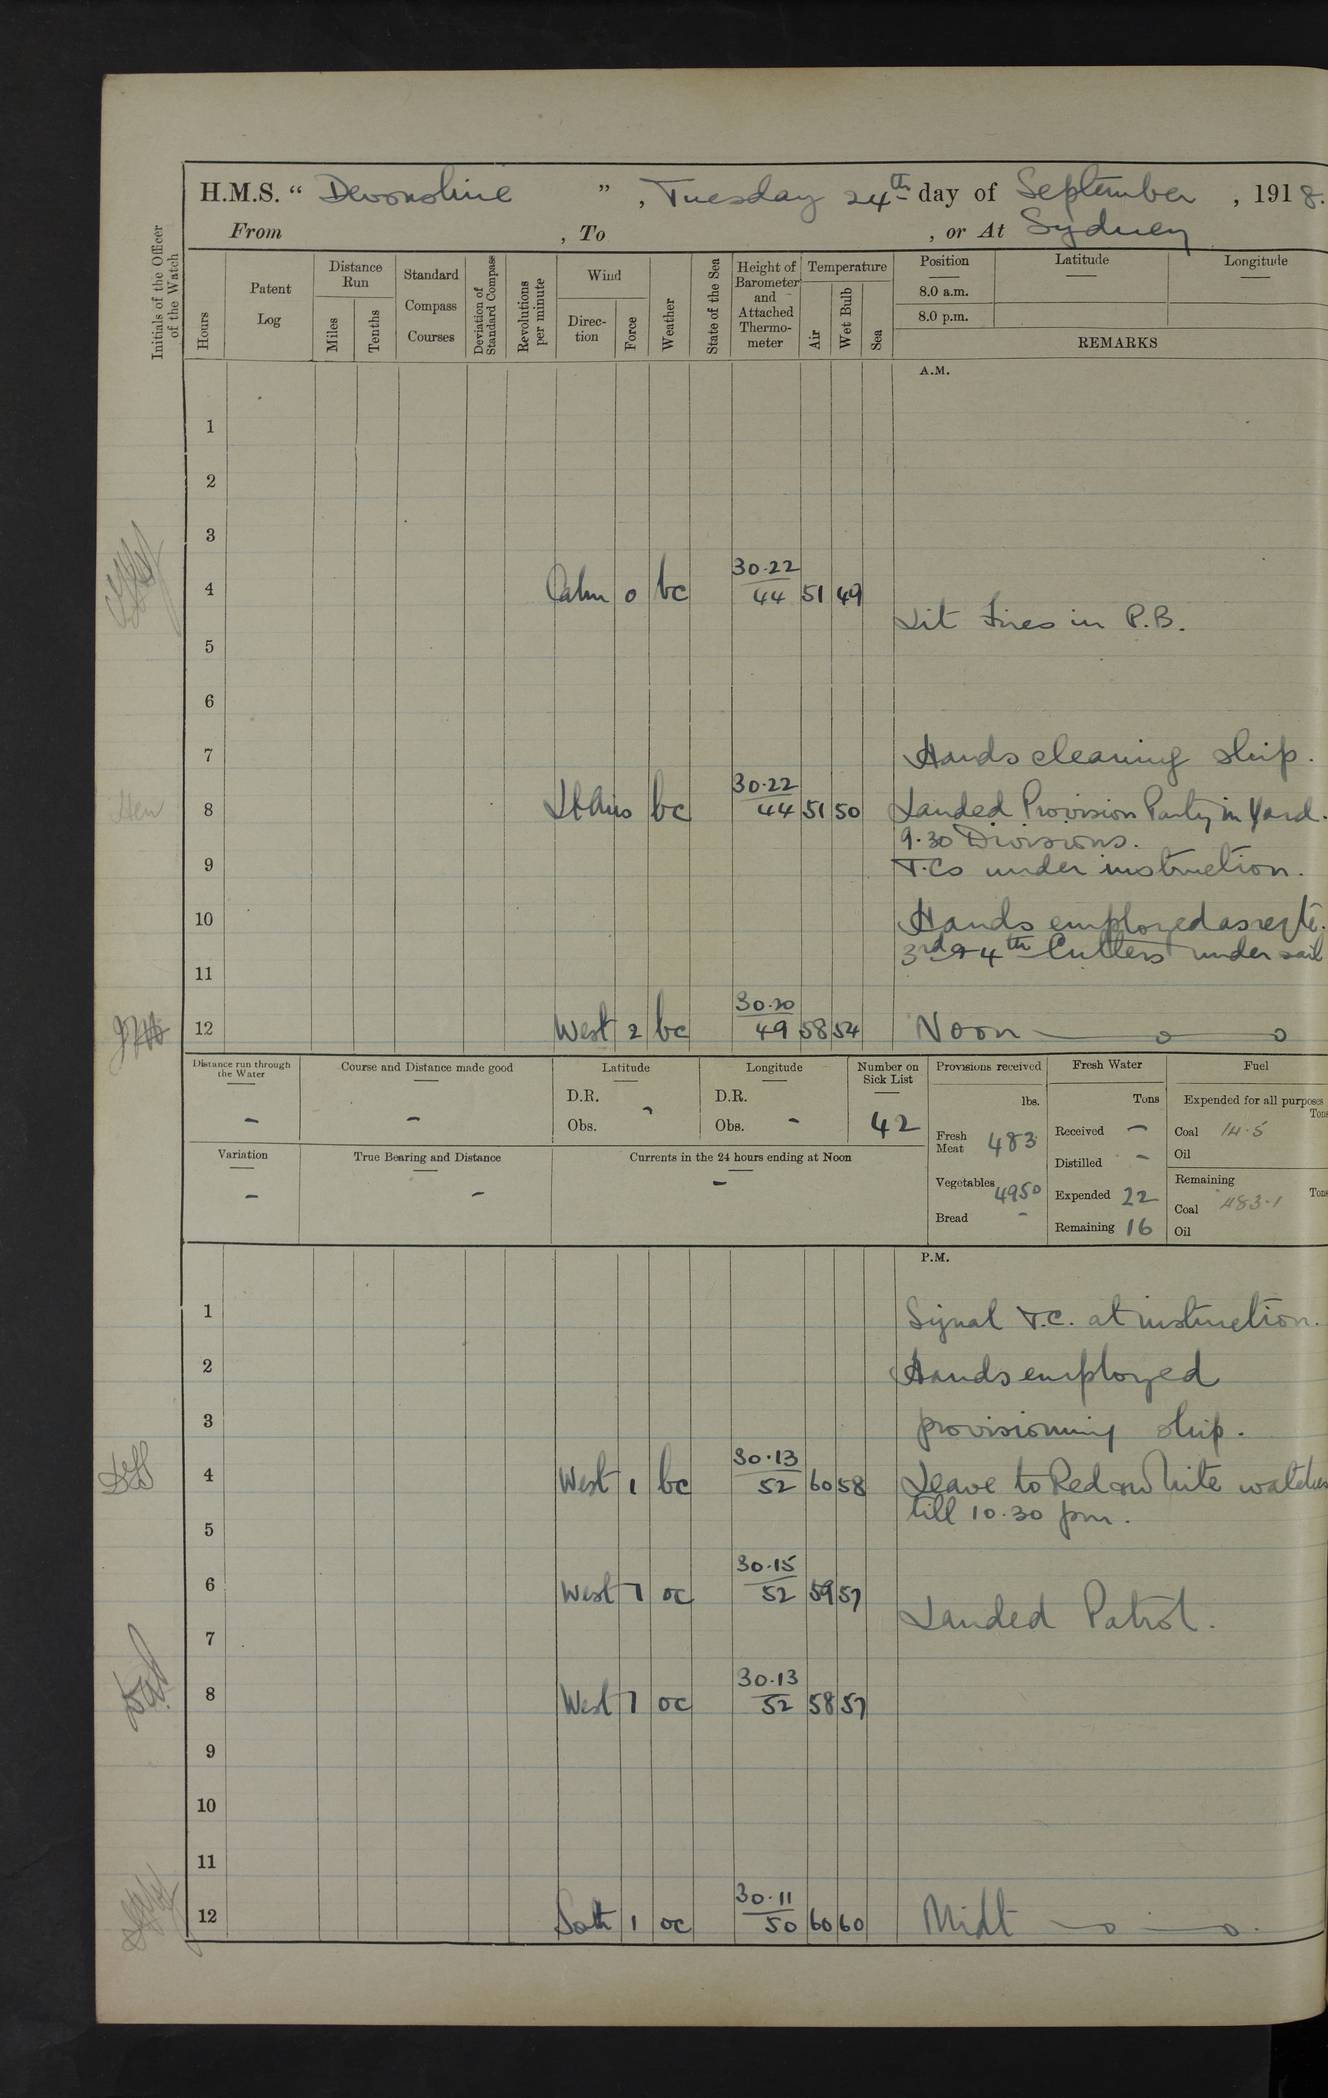 H.M.S. “ Devonshire ”, Tuesday 24th day of September, 1918.
From , To , or At Sydney
Initials of the Officer of the Watch
Hours
Patent Log
Distance Run
Miles
Tenths
Standard Compass Courses
Deviation of Standard Compass
Revolutions per minute
Wind
Direc-tion
Force
Weather
State of the Sea
Height of Barometer and Attached Thermo-meter
Temperature
Air
Wet Bulb
Sea
Position
Latitude
Longitude
8.0 a.m.
8.0 p.m.
REMARKS
A.M.
1
2
3
4 Calm 0 bc 30.22 44 51 49
Lit Fires in P.B.
5
6
7 Hands cleaning ship.
8 Lt Airs bc 30.22 44 51 50 Landed Provision Party in Yard.
9.30 Divisions.
9 T.Cs under instruction.
10 Hands employed as reqte.
3rd & 4th Cutters under sail
11
12 West 2 bc 30.20 49 58 54 Noon
Distance run through the Water
-
Course and Distance made good
-
Latitude
D.R.
Obs. -
Longitude
D.R.
Obs. -
Number on Sick List
42
Provisions received
lbs.
Fresh Meat 483
Vegetables 4950
Bread -
Fresh Water
Tons
Received -
Distilled -
Expended 22
Remaining 16
Fuel
Expended for all purposes
Tons
Coal 14.5
Oil
Remaining
Tons
Coal 483.1
Oil
Variation
-
True Bearing and Distance
-
Currents in the 24 hours ending at Noon
-
P.M.
1 Signal T.C. at instruction.
2 Hands employed
3 provisioning ship.
4 West 1 bc 30.13 52 60 58 Leave to Red and White watches
till 10.30 pm.
5
6 West 1 oc 30.15 52 59 57
Landed Patrol.
7
8 West 1 oc 30.13 52 58 57
9
10
11
12 Soth 1 oc 30.11 50 60 60 Midt